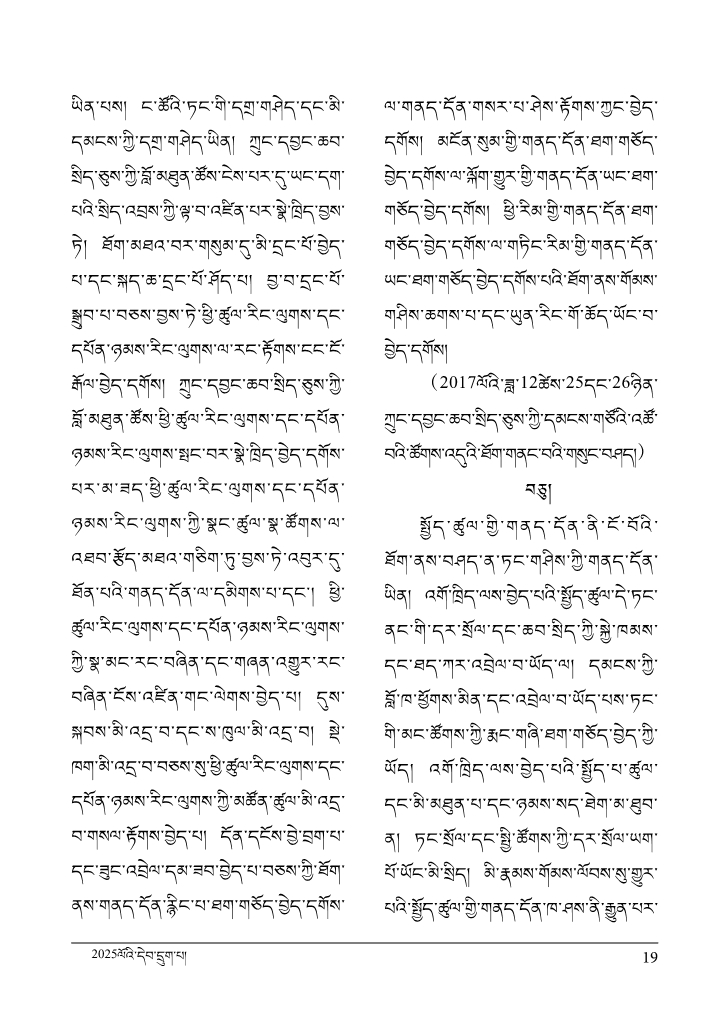 ཡིན་པས། ང་ཚོའི་ཏང་གི་དགྲ་གཤེད་དང་མི་
དམངས་ཀྱི་དགྲ་གཤེད་ཡིན། ཀྲུང་དབྱང་ཆབ་
སྲིད་ཅུས་ཀྱི་བློ་མཐུན་ཚོས་ངེས་པར་དུ་ཡང་དག་
པའི་སྲིད་འབྲས་ཀྱི་ལྟ་བ་འཛིན་པར་སྣེ་ཁྲིད་བྱས་
ཏེ། ཐོག་མཐའ་བར་གསུམ་དུ་མི་དྲང་པོ་བྱེད་
པ་དང་སྐད་ཆ་དྲང་པོ་ཤོད་པ། བྱ་བ་དྲང་པོ་
སྒྲུབ་པ་བཅས་བྱས་ཏེ་ཕྱི་ཚུལ་རིང་ལུགས་དང་
དཔོན་ཉམས་རིང་ལུགས་ལ་རང་རྟོགས་ངང་ངོ་
རྒོལ་བྱེད་དགོས། ཀྲུང་དབྱང་ཆབ་སྲིད་ཅུས་ཀྱི་
བློ་མཐུན་ཚོས་ཕྱི་ཚུལ་རིང་ལུགས་དང་དཔོན་
ཉམས་རིང་ལུགས་སྤང་བར་སྣེ་ཁྲིད་བྱེད་དགོས་
པར་མ་ཟད་ཕྱི་ཚུལ་རིང་ལུགས་དང་དཔོན་
ཉམས་རིང་ལུགས་ཀྱི་སྣང་ཚུལ་སྣ་ཚོགས་ལ་
འཐབ་རྩོད་མཐའ་གཅིག་ཏུ་བྱས་ཏེ་འབུར་དུ་
ཐོན་པའི་གནད་དོན་ལ་དམིགས་པ་དང་། ཕྱི་
ཚུལ་རིང་ལུགས་དང་དཔོན་ཉམས་རིང་ལུགས་
ཀྱི་སྣ་མང་རང་བཞིན་དང་གཞན་འགྱུར་རང་
བཞིན་ངོས་འཛིན་གང་ལེགས་བྱེད་པ། དུས་
སྐབས་མི་འདྲ་བ་དང་ས་ཁུལ་མི་འདྲ་བ། སྡེ་
ཁག་མི་འདྲ་བ་བཅས་སུ་ཕྱི་ཚུལ་རིང་ལུགས་དང་
དཔོན་ཉམས་རིང་ལུགས་ཀྱི་མཚོན་ཚུལ་མི་འདྲ་
བ་གསལ་རྟོགས་བྱེད་པ། དོན་དངོས་བྱེ་བྲག་པ་
དང་ཟུང་འབྲེལ་དམ་ཟབ་བྱེད་པ་བཅས་ཀྱི་ཐོག་
ནས་གནད་དོན་རྙིང་པ་ཐག་གཅོད་བྱེད་དགོས་
ལ་གནད་དོན་གསར་པ་ཤེས་རྟོགས་ཀྱང་བྱེད་
དགོས། མངོན་སུམ་གྱི་གནད་དོན་ཐག་གཅོད་
བྱེད་དགོས་ལ་ལྐོག་གྱུར་གྱི་གནད་དོན་ཡང་ཐག་
གཅོད་བྱེད་དགོས། ཕྱི་རིམ་གྱི་གནད་དོན་ཐག་
གཅོད་བྱེད་དགོས་ལ་གཏིང་རིམ་གྱི་གནད་དོན་
ཡང་ཐག་གཅོད་བྱེད་དགོས་པའི་ཐོག་ནས་གོམས་
གཤིས་ཆགས་པ་དང་ཡུན་རིང་གོ་ཆོད་ཡོང་བ་
བྱེད་དགོས།
(2017ལོའི་ཟླ་12ཚེས་25དང་26ཉིན་
ཀྲུང་དབྱང་ཆབ་སྲིད་ཅུས་ཀྱི་དམངས་གཙོའི་འཚོ་
བའི་ཚོགས་འདུའི་ཐོག་གནང་བའི་གསུང་བཤད།)
བཅུ།
སྤྱོད་ཚུལ་གྱི་གནད་དོན་ནི་ངོ་བོའི་
ཐོག་ནས་བཤད་ན་ཏང་གཤིས་ཀྱི་གནད་དོན་
ཡིན། འགོ་ཁྲིད་ལས་བྱེད་པའི་སྤྱོད་ཚུལ་དེ་ཏང་
ནང་གི་དར་སྲོལ་དང་ཆབ་སྲིད་ཀྱི་སྐྱེ་ཁམས་
དང་ཐད་ཀར་འབྲེལ་བ་ཡོད་ལ། དམངས་ཀྱི་
བློ་ཁ་ཕྱོགས་མིན་དང་འབྲེལ་བ་ཡོད་པས་ཏང་
གི་མང་ཚོགས་ཀྱི་རྨང་གཞི་ཐག་གཅོད་བྱེད་ཀྱི་
ཡོད། འགོ་ཁྲིད་ལས་བྱེད་པའི་སྤྱོད་པ་ཚུལ་
དང་མི་མཐུན་པ་དང་ཉམས་སད་ཐེག་མ་ཐུབ་
ན། ཏང་སྲོལ་དང་སྤྱི་ཚོགས་ཀྱི་དར་སྲོལ་ཡག་
པོ་ཡོང་མི་སྲིད། མི་རྣམས་གོམས་ལོབས་སུ་གྱུར་
པའི་སྤྱོད་ཚུལ་གྱི་གནད་དོན་ཁ་ཤས་ནི་རྒྱུན་པར་
2025ལོའི་དེབ་དྲུག་པ།
19